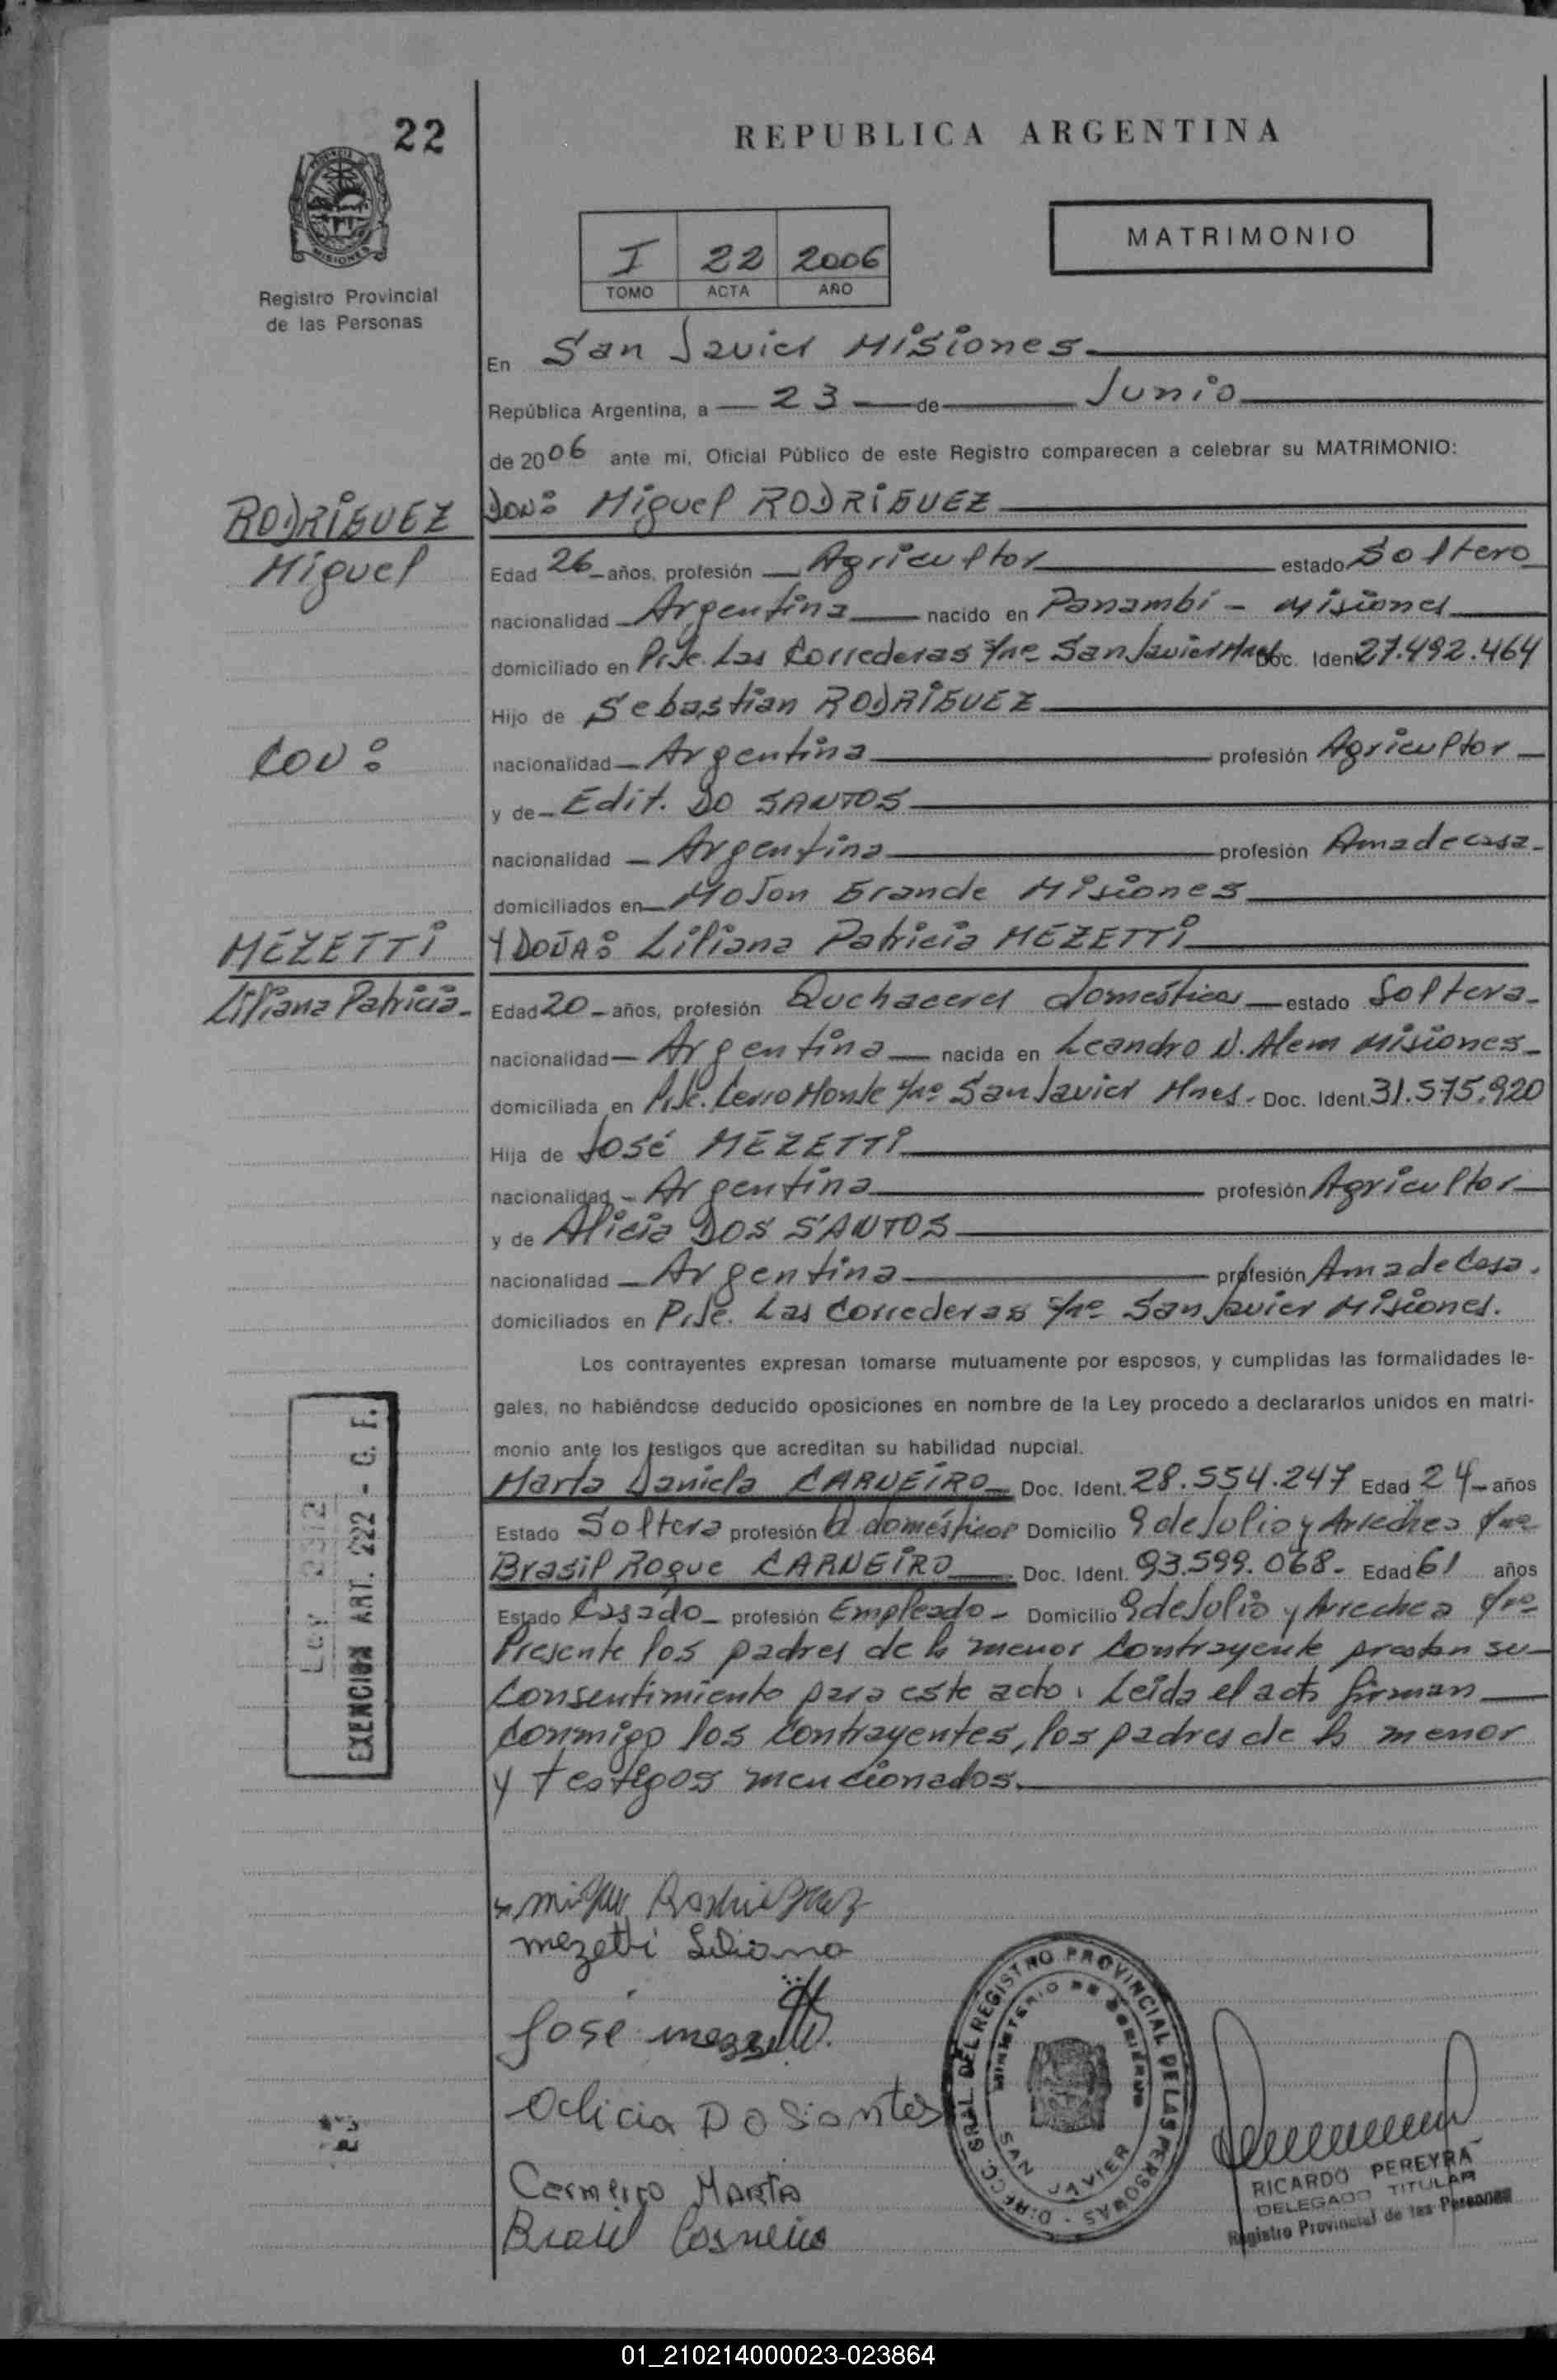 22
REPUBLICA ARGENTINA
MISIONES
Registro Provincial
de las Personas
I 22 2006
TOMO ACTA AÑO
MATRIMONIO
En San Javier Misiones
República Argentina, a 23 de Junio
de 2006 ante mi, Oficial Público de este Registro comparecen a celebrar su MATRIMONIO:
RODRIGUEZ
Miguel
Con:
MEZETTI
Liliana Patricia
Don: Miguel RODRIGUEZ
Edad 26 años, profesión Agricultor estado Soltero
nacionalidad Argentina nacido en Panambí - Misiones
domiciliado en Pje. Las Correderas San Javier Mnes Doc. Iden 27.492.464
Hijo de Sebastian RODRIGUEZ
nacionalidad Argentina profesión Agricultor
y de Edit. DO SANTOS
nacionalidad Argentina profesión Ama de casa
domiciliados en Mojon Grande Misiones
Y DOÑA: Liliana Patricia MEZETTI
Edad 20 años, profesión Quehaceres domésticos estado Soltera
nacionalidad Argentina nacida en Leandro N. Alem Misiones
domiciliada en Pje. Cerro Monte San Javier Mnes. Doc. Ident. 31.575.920
Hija de José MEZETTI
nacionalidad Argentina profesión Agricultor
y de Alicia DOS SANTOS
nacionalidad Argentina profesión Ama de Casa.
domiciliados en Pje. Las Correderas San Javier Misiones.
Los contrayentes expresan tomarse mutuamente por esposos, y cumplidas las formalidades le-
gales, no habiéndose deducido oposiciones en nombre de la Ley procedo a declararlos unidos en matri-
monio ante los testigos que acreditan su habilidad nupcial.
Marta Daniela CARNEIRO Doc. Ident. 28.554.247 Edad 24 años
Estado Soltera profesión Q domésticos Domicilio 9 de Julio y Arrechea
Brasil Roque CARNEIRO Doc. Ident. 93.599.068 Edad 61 años
Estado Casado profesión Empleado Domicilio 9 de Julio y Arrechea
Presente los padres de la menor contrayente prestan su
consentimiento para este acto. Leída el acta firman
conmigo los contrayentes, los padres de la menor
y testigos mencionados.
EXENCION ART. 222 - C. F.
Rodriguez
mezetti Liliana
José mezzetti
Alicia Do Santos
Carneiro Marta
Brasil Carneiro
DIRECC. GRAL. DEL REGISTRO PROVINCIAL DE LAS PERSONAS
MINISTERIO DE GOBIERNO
SAN JAVIER
RICARDO PEREYRA
DELEGADO TITULAR
Registro Provincial de las Personas
01_210214000023-023864